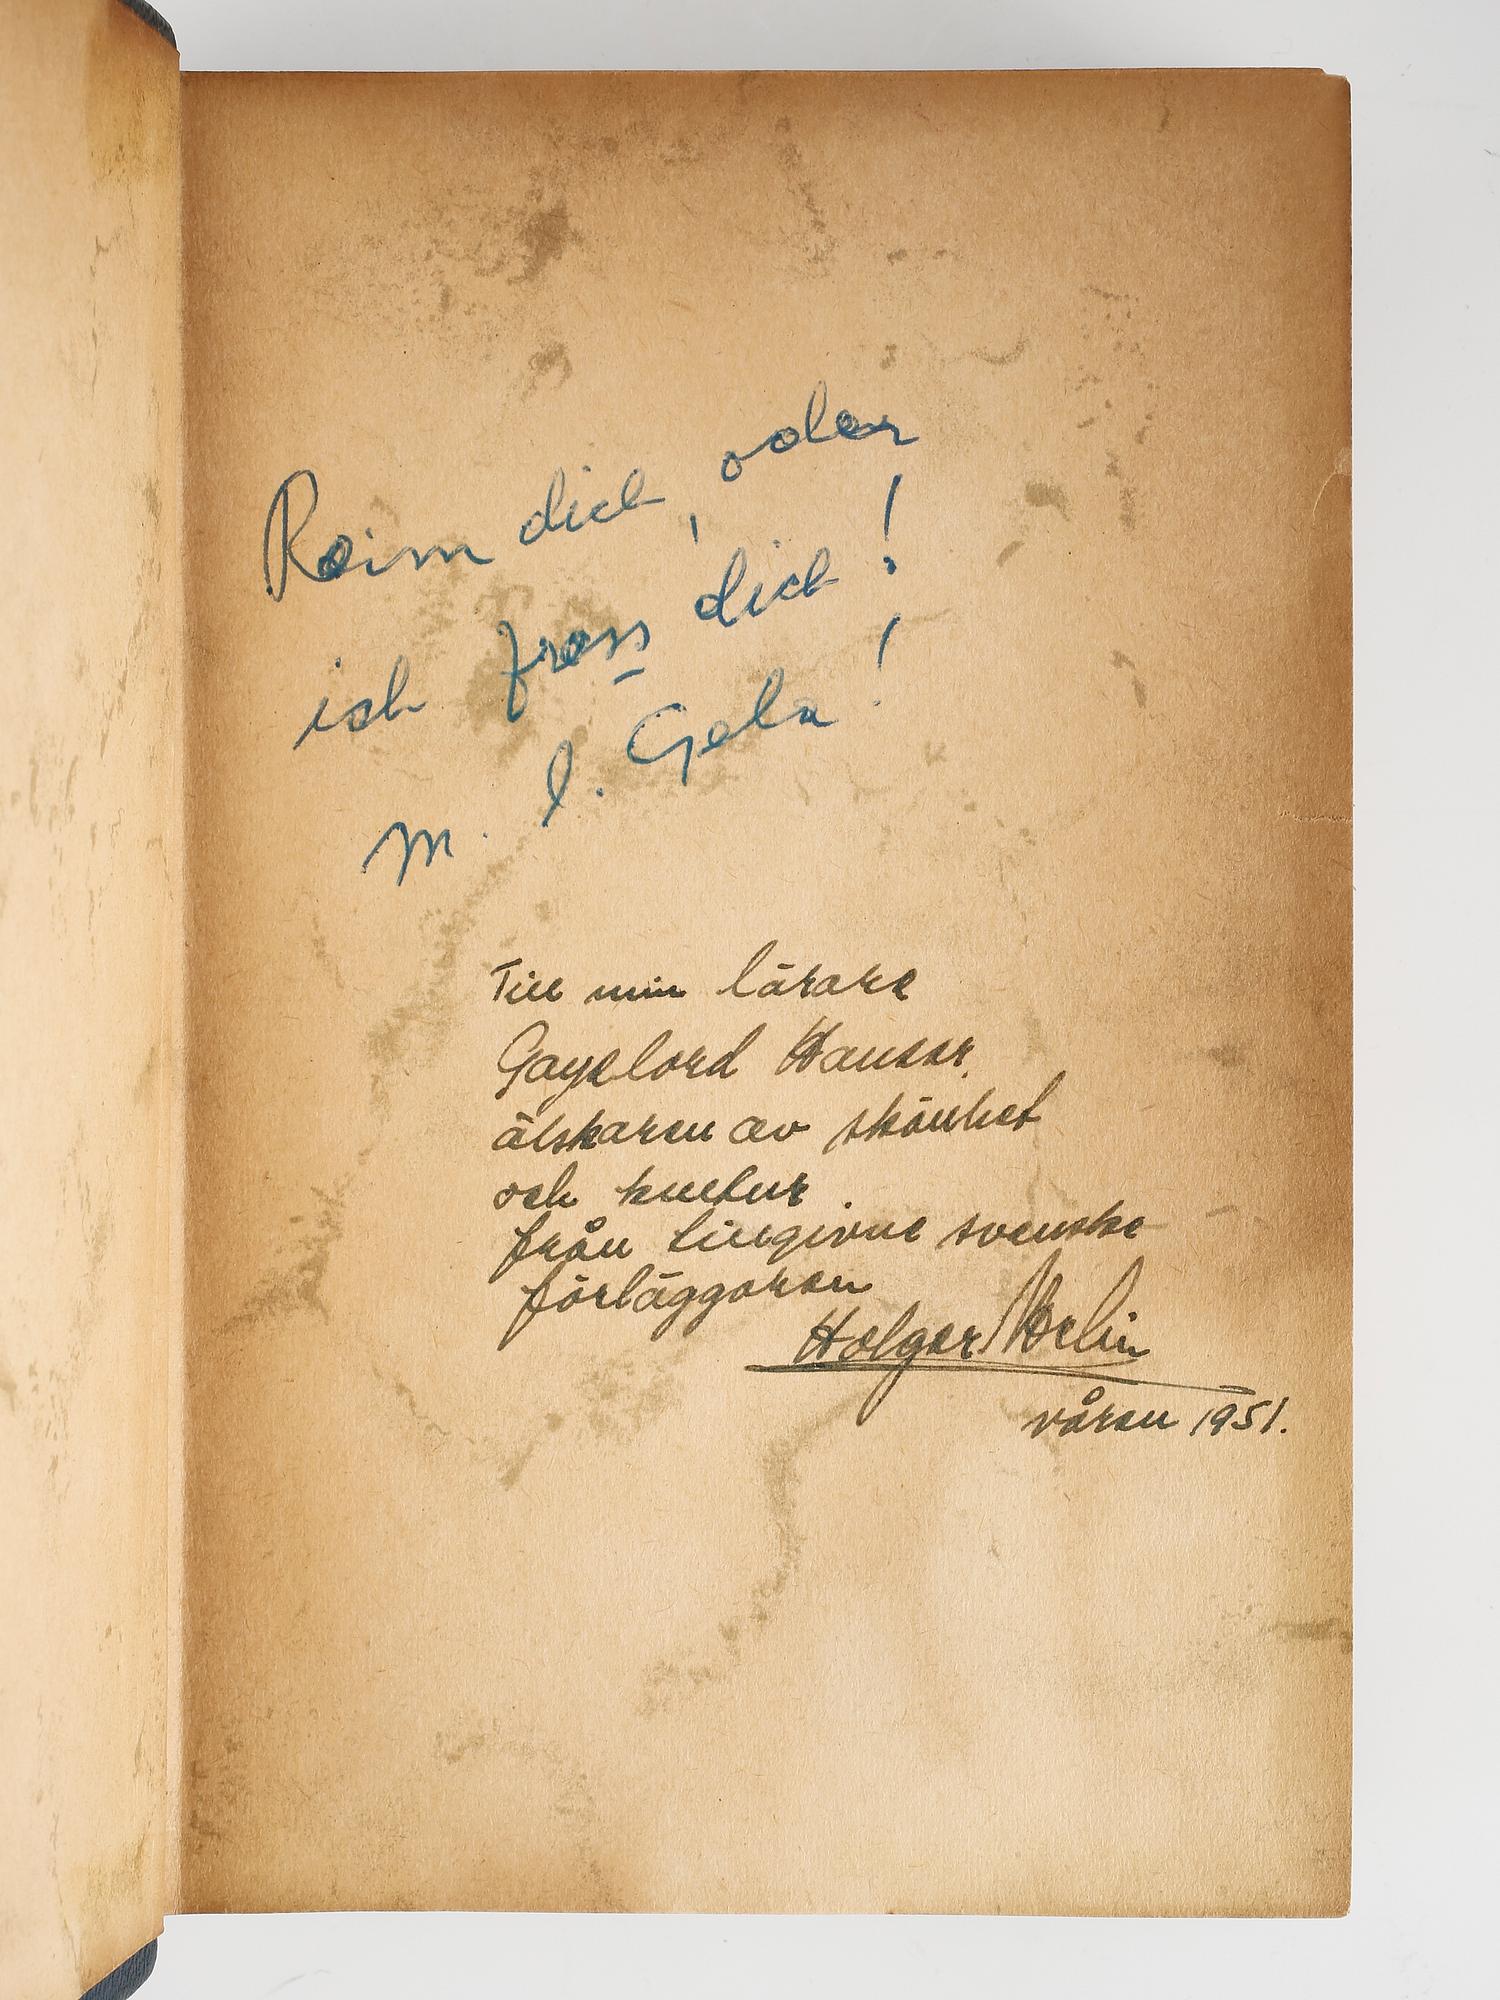 Reim dich, oder
ich fress dich!
m. l. Gela!
Till min lärare
Gayelord Hauser,
älskaren av skönhet
och kultur
från tillgivne svenske
förläggaren
Holger
våren 1951.